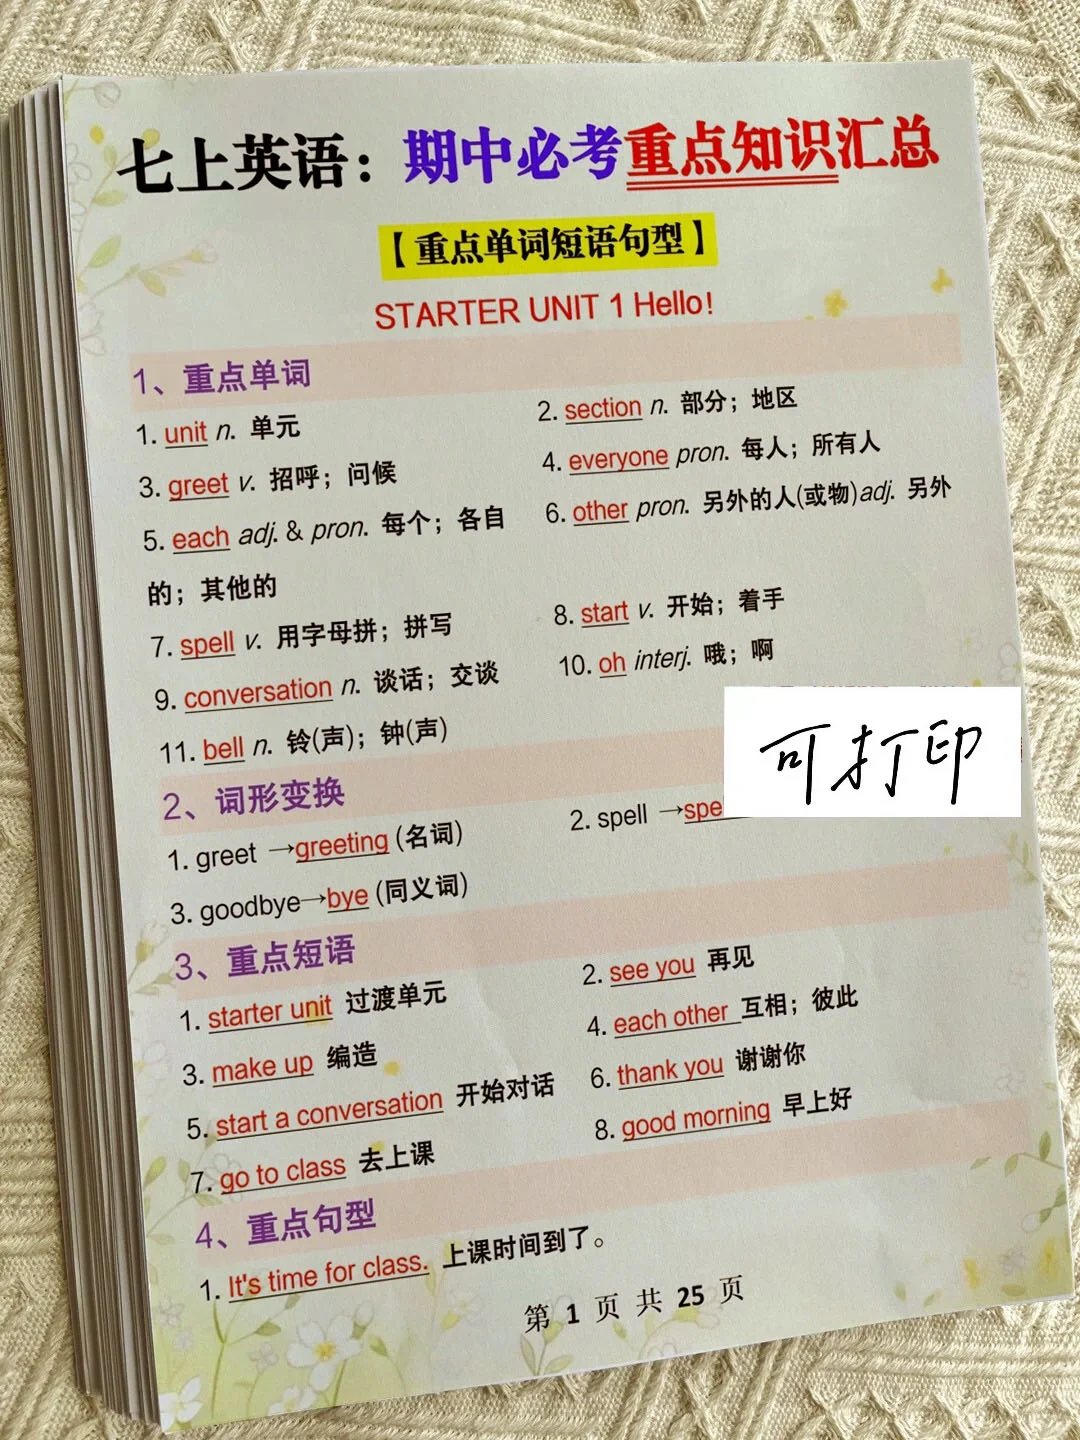 七上英语：期中必考重点知识汇总
【重点单词短语句型】
STARTER UNIT 1 Hello!
1、重点单词
1. unit n. 单元
2. section n. 部分；地区
3. greet v. 招呼；问候
4. everyone pron. 每人；所有人
5. each adj. & pron. 每个；各自
6. other pron. 另外的人(或物)adj. 另外
的；其他的
7. spell v. 用字母拼；拼写
8. start v. 开始；着手
9. conversation n. 谈话；交谈
10. oh interj. 哦；啊
11. bell n. 铃(声)；钟(声)
可打印
2、词形变换
1. greet →greeting (名词)
2. spell →spe
3. goodbye→bye (同义词)
3、重点短语
1. starter unit 过渡单元
2. see you 再见
3. make up 编造
4. each other 互相；彼此
5. start a conversation 开始对话
6. thank you 谢谢你
7. go to class 去上课
8. good morning 早上好
4、重点句型
1. It's time for class. 上课时间到了。
第 1 页 共 25 页